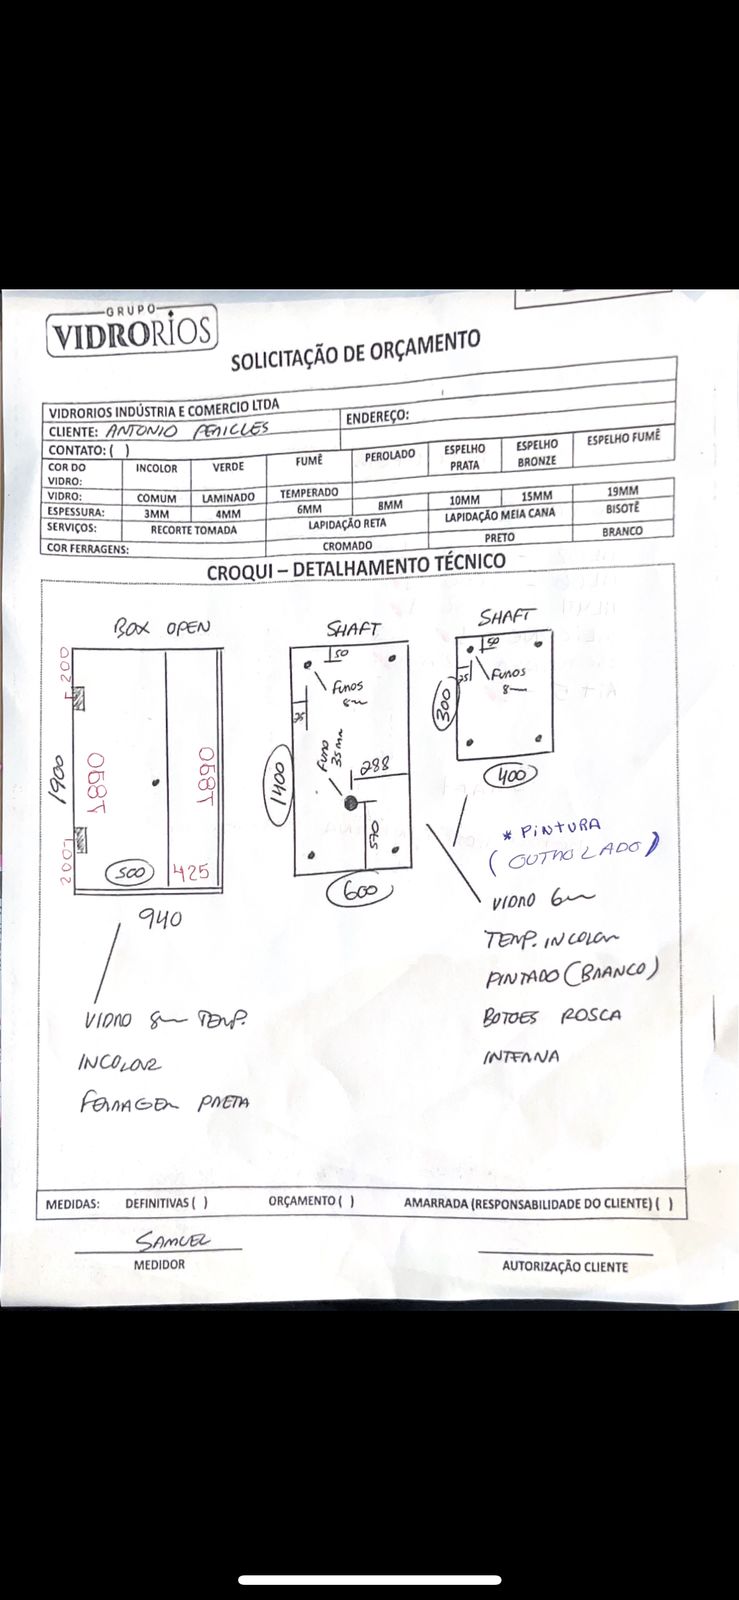 GRUPO
VIDRORIOS
SOLICITAÇÃO DE ORÇAMENTO
VIDRORIOS INDÚSTRIA E COMERCIO LTDA
CLIENTE: ANTONIO PERICLES ENDEREÇO:
CONTATO: ( )
COR DO VIDRO: INCOLOR VERDE FUMÊ PEROLADO ESPELHO PRATA ESPELHO BRONZE ESPELHO FUMÊ
VIDRO: COMUM LAMINADO TEMPERADO
ESPESSURA: 3MM 4MM 6MM 8MM 10MM 15MM 19MM
SERVIÇOS: RECORTE TOMADA LAPIDAÇÃO RETA LAPIDAÇÃO MEIA CANA BISOTÊ
COR FERRAGENS: CROMADO PRETO BRANCO
CROQUI – DETALHAMENTO TÉCNICO
BOX OPEN
200
1900
1890
1890
200
500
425
940
VIDRO 8mm TEMP.
INCOLOR
FERRAGEM PRETA
SHAFT
50
FUROS
8mm
25
FURO
35mm
288
1400
570
600
SHAFT
50
25
FUROS
8mm
300
400
* PINTURA
( OUTRO LADO )
VIDRO 6mm
TEMP. INCOLOR
PINTADO (BRANCO)
BOTOES ROSCA
INTERNA
MEDIDAS: DEFINITIVAS ( ) ORÇAMENTO ( ) AMARRADA (RESPONSABILIDADE DO CLIENTE) ( )
SAMUEL
MEDIDOR
AUTORIZAÇÃO CLIENTE